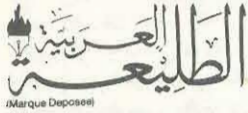 الطَّلِيعَة العَرَبيَّة
(Marque Deposee)